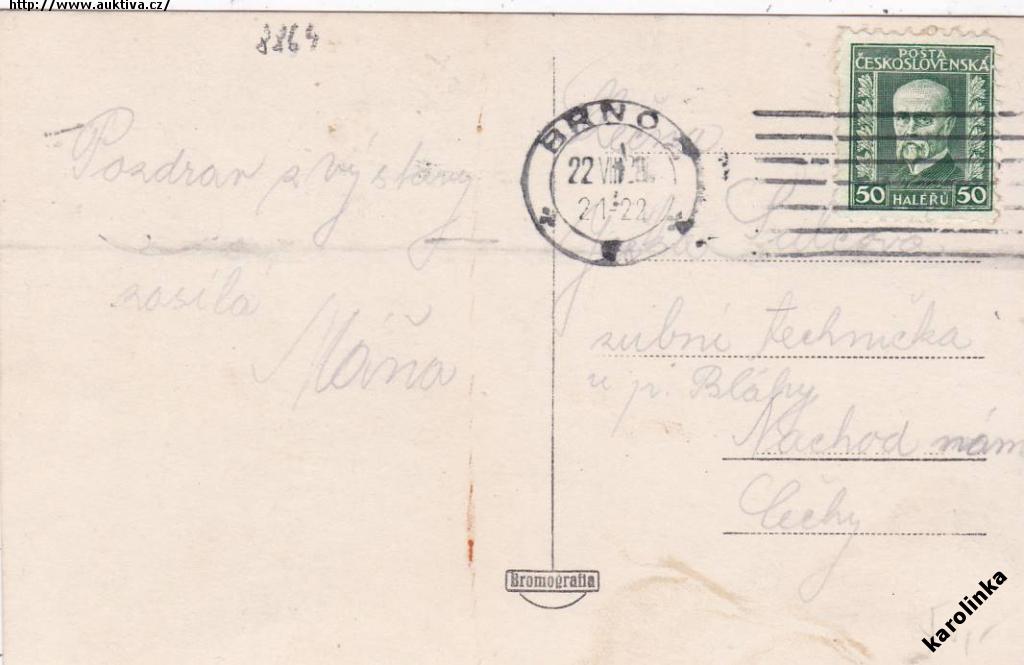 http://www.auktiva.cz/
8864
Pozdrav z výstavy
zasílá
Máňa
BRNO
22 VIII
21-22
POŠTA
ČESKOSLOVENSKÁ
50 HALÉŘŮ 50
Slečna
zubní technička
u p. Bláhy
Nachod nám
Čechy
Bromografia
karolinka